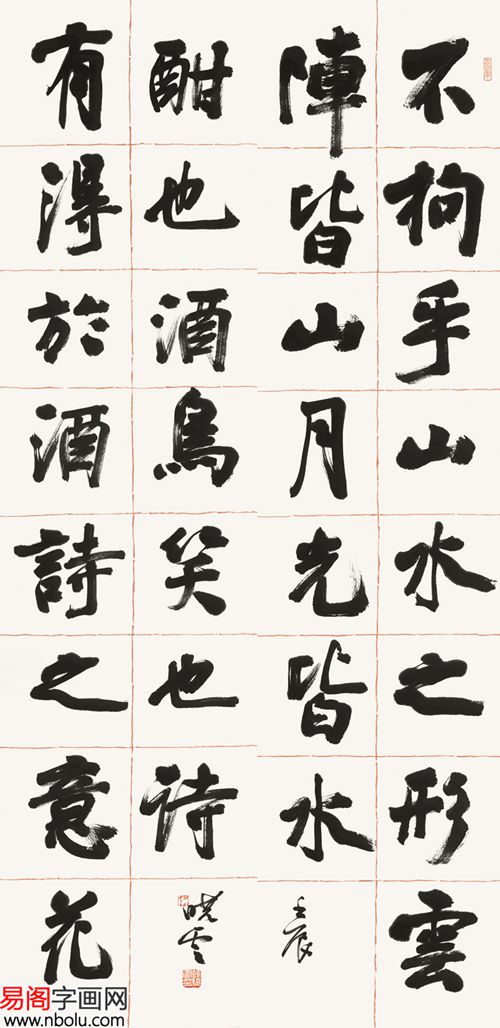 不拘乎山水之形雲
陣皆山月光皆水
壬辰
有得於酒詩之意花
酣也酒鳥笑也诗
晓云
易阁字画网
www.nbolu.com